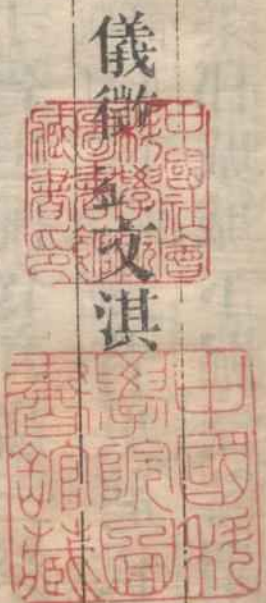 儀徵文淇
中國社會
科學院
藏書印
中國科
學院圖
書館藏